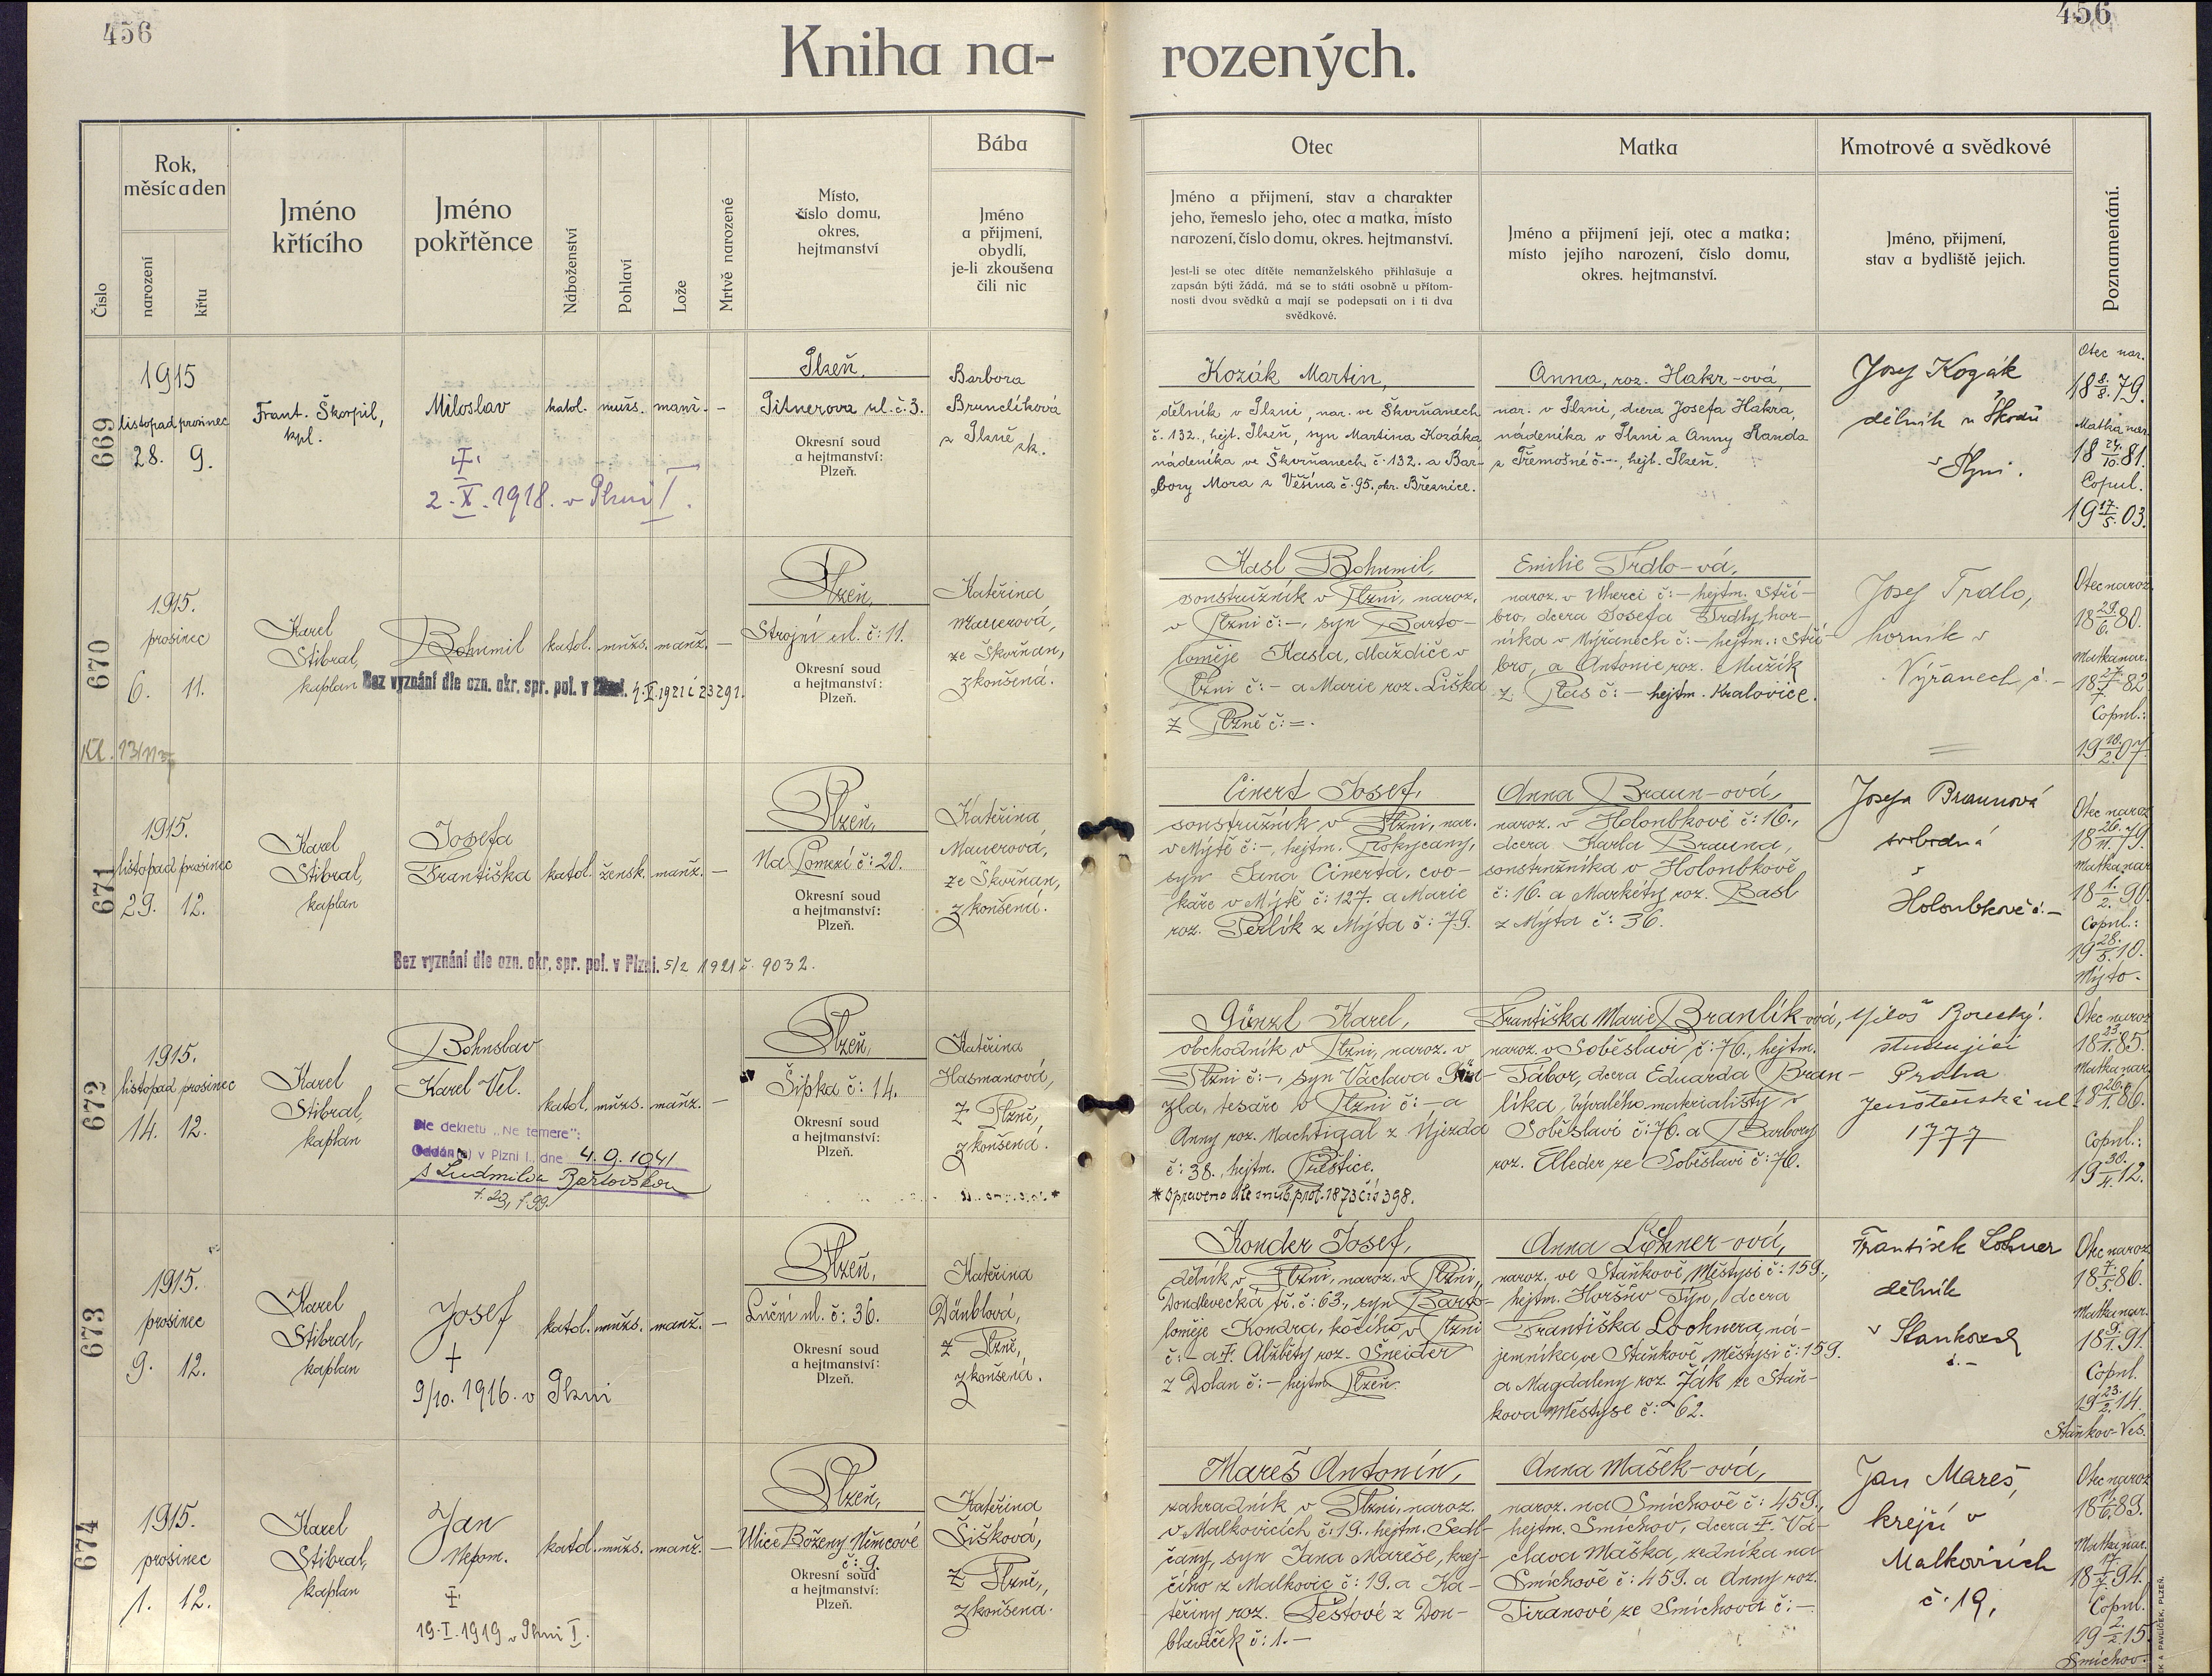 456
456
Kniha na-
rozených.
Číslo
Rok,
měsíc a den
narození
křtu
Jméno
křtícího
Jméno
pokřtěnce
Náboženství
Pohlaví
Lože
Mrtvě narozené
Místo,
číslo domu,
okres,
hejtmanství
Bába
Jméno
a přijmení,
obydlí,
je-li zkoušena
čili nic
Otec
Jméno a přijmení, stav a charakter
jeho, řemeslo jeho, otec a matka, místo
narození, číslo domu, okres. hejtmanství.
Jest-li se otec dítěte nemanželského přihlašuje a
zapsán býti žádá, má se to státi osobně u přítom-
nosti dvou svědků a mají se podepsati on i ti dva
svědkové.
Matka
Jméno a přijmení její, otec a matka;
místo jejího narození, číslo domu,
okres. hejtmanství.
Kmotrové a svědkové
Jméno, přijmení,
stav a bydliště jejich.
Poznamenání.
669
1915
listopad prosinec
28. 9.
Frant. Škorpil,
kpl.
Miloslav
2. X. 1918. v Plzni I.
katol. mužs. manž. -
Plzeň,
Pitnerova ul. č. 3.
Okresní soud
a hejtmanství:
Plzeň.
Barbora
Brunclíková
z Plzně zk.
Kozák Martin,
dělník v Plzni, nar. ve Škvrňanech
č. 132., hejt. Plzeň, syn Martina Kozáka
nádeníka ve Škvrňanech č. 132. a Bar-
bory Mora z Věšína č. 95., okr. Březnice.
Anna, roz. Hakr-ová,
nar. v Plzni, dcera Josefa Hakra,
nádeníka v Plzni a Anny Randa
z Třemošné č. -, hejt. Plzeň.
Josef Kozák
dělník u Škodů
v Plzni.
Otec nar.
18 8./8. 79.
Matka nar.
18 24./10. 81.
Copul.
19 17./5. 03.
670
1915.
prosinec
6. 11.
Karel
Stibral,
kaplan
Bohumil
katol. mužs. manž. -
Bez vyznání dle ozn. okr. spr. pol. v
Plzeň,
Strojní ul. č: 11.
Okresní soud
a hejtmanství:
Plzeň.
Kateřina
Mauerová,
ze Škvrňan,
zkoušená.
Kasl Bohumil,
soustružník v Plzni, naroz.
v Plzni č: -, syn Barto-
loměje Kasla, dlaždiče v
Plzni č: - a Marie roz. Liška
z Plzně č: -.
Emilie Trdlo-vá,
naroz. v Uherci č: - hejtm. Stří-
bro, dcera Josefa Trdly hor-
níka v Nýřanech č: - hejtm.: Stří-
bro, a Antonie roz. Mužík
z: Plas č: - hejtm. Kralovice.
Josef Trdlo,
horník v
Nýřanech č. -
Otec naroz.
18 29./6. 80.
Matka nar.
18 27./7. 82
Copul.:
19 10./2. 07.
671
1915.
listopad prosinec
29. 12.
Karel
Stibral,
kaplan
Josefa
Františka
katol. žensk. manž. -
Bez vyznání dle ozn. okr. spr. pol. v Plzni. 5/2 1921 č. 9032.
Plzeň,
Na Pomezí č: 20.
Okresní soud
a hejtmanství:
Plzeň.
Kateřina
Mauerová,
ze Škvrňan,
zkoušená.
Cinert Josef,
soustružník v Plzni, nar.
v Mýtě č: -, hejtm. Rokycany,
syn Jana Cinerta, cvo-
kaře v Mýtě č: 127. a Marie
roz. Perlík z Mýta č: 79.
Anna Braun-ová,
naroz. v Holoubkově č: 16.,
dcera Karla Brauna,
soustružníka v Holoubkově
č: 16. a Markéty roz. Basl
z Mýta č: 36.
Josefa Braunová
svobodná
v
Holoubkově č. -
Otec naroz.
18 26./11. 79.
Matka nar.
18 1./2. 90.
Copul.:
19 28./5. 10.
Mýto.
672
1915.
listopad prosinec
14. 12.
Karel
Stibral,
kaplan
Bohuslav
Karel Vel.
katol. mužs. manž. -
Dle dekretu „Ne temere":
Oddán(a) v Plzni I., dne 4. 9. 1941
s Ludmilou
Plzeň,
Šipka č: 14.
Okresní soud
a hejtmanství:
Plzeň.
Kateřina
Hasmanová,
z Plzně,
zkoušená.
Günzl Karel,
obchodník v Plzni, naroz. v
Plzni č: -, syn Václava Gün-
zla, tesaře v Plzni č: - a
Anny roz. Nachtigal z Újezda
č: 38., hejtm. Přeštice.
* Opraveno dle snub. prot. 1873 čís 398.
Františka Marie Branlík-ová,
naroz. v Soběslavi č: 76., hejtm.
Tábor, dcera Eduarda Bran-
líka, bývalého materialisty v
Soběslavi č: 76. a Barbory
roz. Elleder ze Soběslavi č: 76.
Miloš Borecký.
studující
Praha
Jenštenská ul.
1777
Otec naroz.
18 23./1. 85.
Matka nar.
18 26./1. 86.
Copul.:
19 30./4. 12.
673
1915.
prosinec
9. 12.
Karel
Stibral,
kaplan
Josef
+
9/10. 1916. v Plzni
katol. mužs. manž. -
Plzeň,
Luční ul. č: 36.
Okresní soud
a hejtmanství:
Plzeň.
Kateřina
Däublová,
z Plzně,
zkoušená.
Konder Josef,
dělník v Plzni, naroz. v Plzni,
Doudlevecká tř. č: 63., syn Barto-
loměje Kondra, kočího v Plzni
č: - a Ɨ. Alžběty roz. Šneider
z Dolan č: - hejtm. Plzeň.
Anna Lohner-ová,
naroz. ve Staňkově Městysi č: 159.,
hejtm. Horšův Týn, dcera
Františka Lochnera, ná-
jemníka ve Staňkově Městysi č: 159.
a Magdaleny roz. Žák ze Staň-
kova Městyse č: 62.
František Lohner
dělník
v Stankově
č. -
Otec naroz.
18 7./5. 86.
Matka nar.
18 9./1. 91.
Copul.
19 23./2. 14.
Staňkov-Ves.
674
1915.
prosinec
1. 12.
Karel
Stibral,
kaplan
Jan
Nepom.
19. I. 1919 v Plzni I.
katol. mužs. manž. -
Plzeň,
Ulice Boženy Němcové
č: 9.
Okresní soud
a hejtmanství:
Plzeň.
Kateřina
Šišková,
z Plzně,
zkoušená.
Mareš Antonín,
zahradník v Plzni, naroz.
v Malkovicích č: 19., hejtm. Sedl-
čany, syn Jana Mareše, krej-
čího z Malkovic č: 19. a Ka-
teřiny roz. Peštové z Dou-
blaviček č: 1. -
Anna Mašek-ová,
naroz. na Smíchově č: 459.,
hejtm. Smíchov, dcera Ɨ. Vá-
clava Maška, zedníka na
Smíchově č: 459. a Anny roz.
Tiranové ze Smíchova č: -.
Jan Mareš,
krejčí v
Malkovicích
č. 19,
Otec naroz.
Matka nar.
18 17./7. 94.
Copul.
19 2./2. 15.
Smíchov.